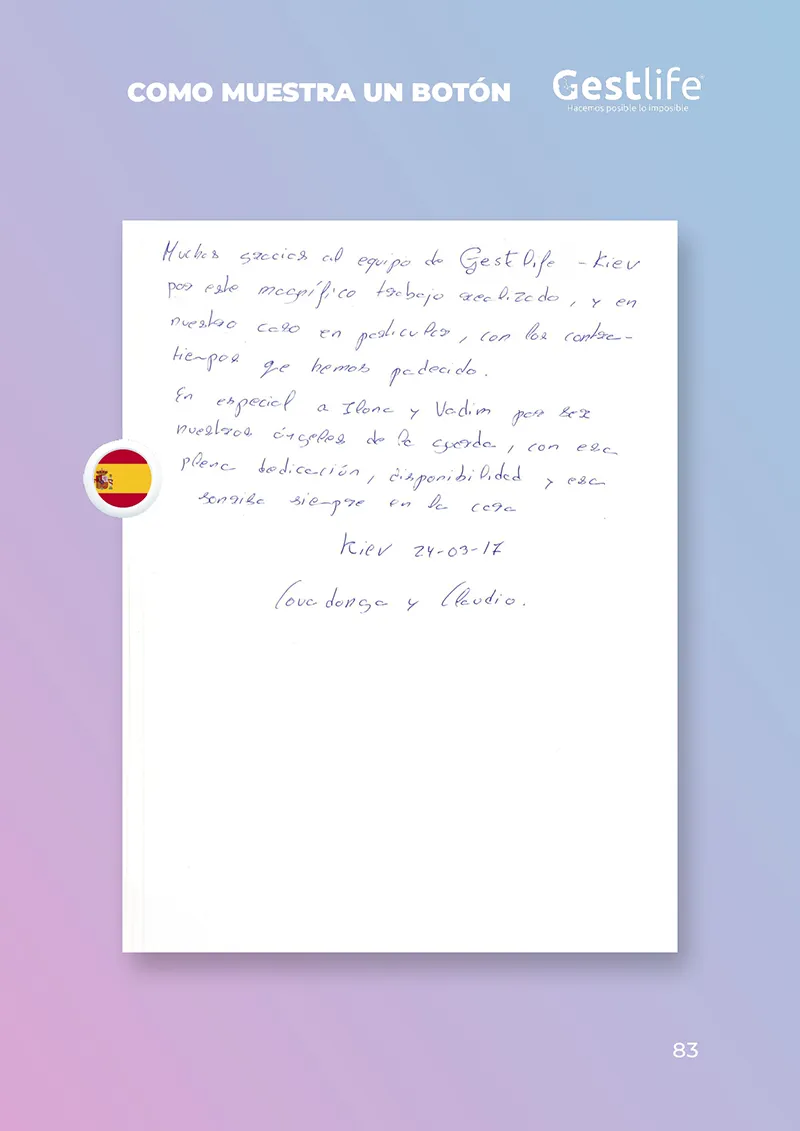 COMO MUESTRA UN BOTÓN
Gestlife
Hacemos posible lo imposible
Muchas gracias al equipo de Gestlife - Kiev
por este magnífico trabajo realizado, y en
nuestro caso en particular, con los contra-
tiempos que hemos padecido.
En especial a Ilona y Vadim por ser
nuestros ángeles de la guarda, con esa
plena dedicación, disponibilidad y esa
sonrisa siempre en la cara
Kiev 24-03-17
Covadonga y Claudio.
83